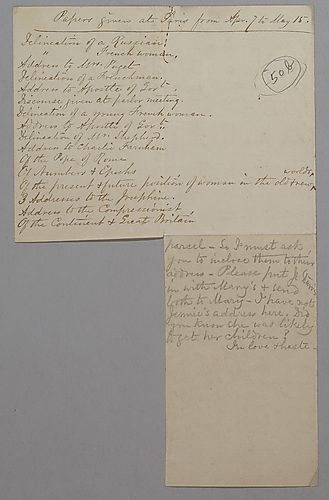 Papers given at Paris from Apr. 7 to May 15.
Delineation of a Russian.
" " French woman.
Address to Mrs. Puget
Delineation of a Frenchman.
Address to Apostle of Gov't.
Discourse given at parlor meeting.
Delineation of a young French woman.
Address to Apostle of Gov't.
Delineation of Mr. Shepherd.
Address to Charlie Farnham
Of the Pope of Rome
Of Numbers & Epochs
Of the present & future position of woman in the old & new worlds.
3 Addresses to the Josephine
Address to the Compressionist
Of the Continent & Great Britain
508
parcel – So I must ask
you to inclose them to their
address – Please put
in with Mary's & send
both to Mary – I have not
Jennie's address here. Did
you know she was likely
to get her children?
In love & haste –